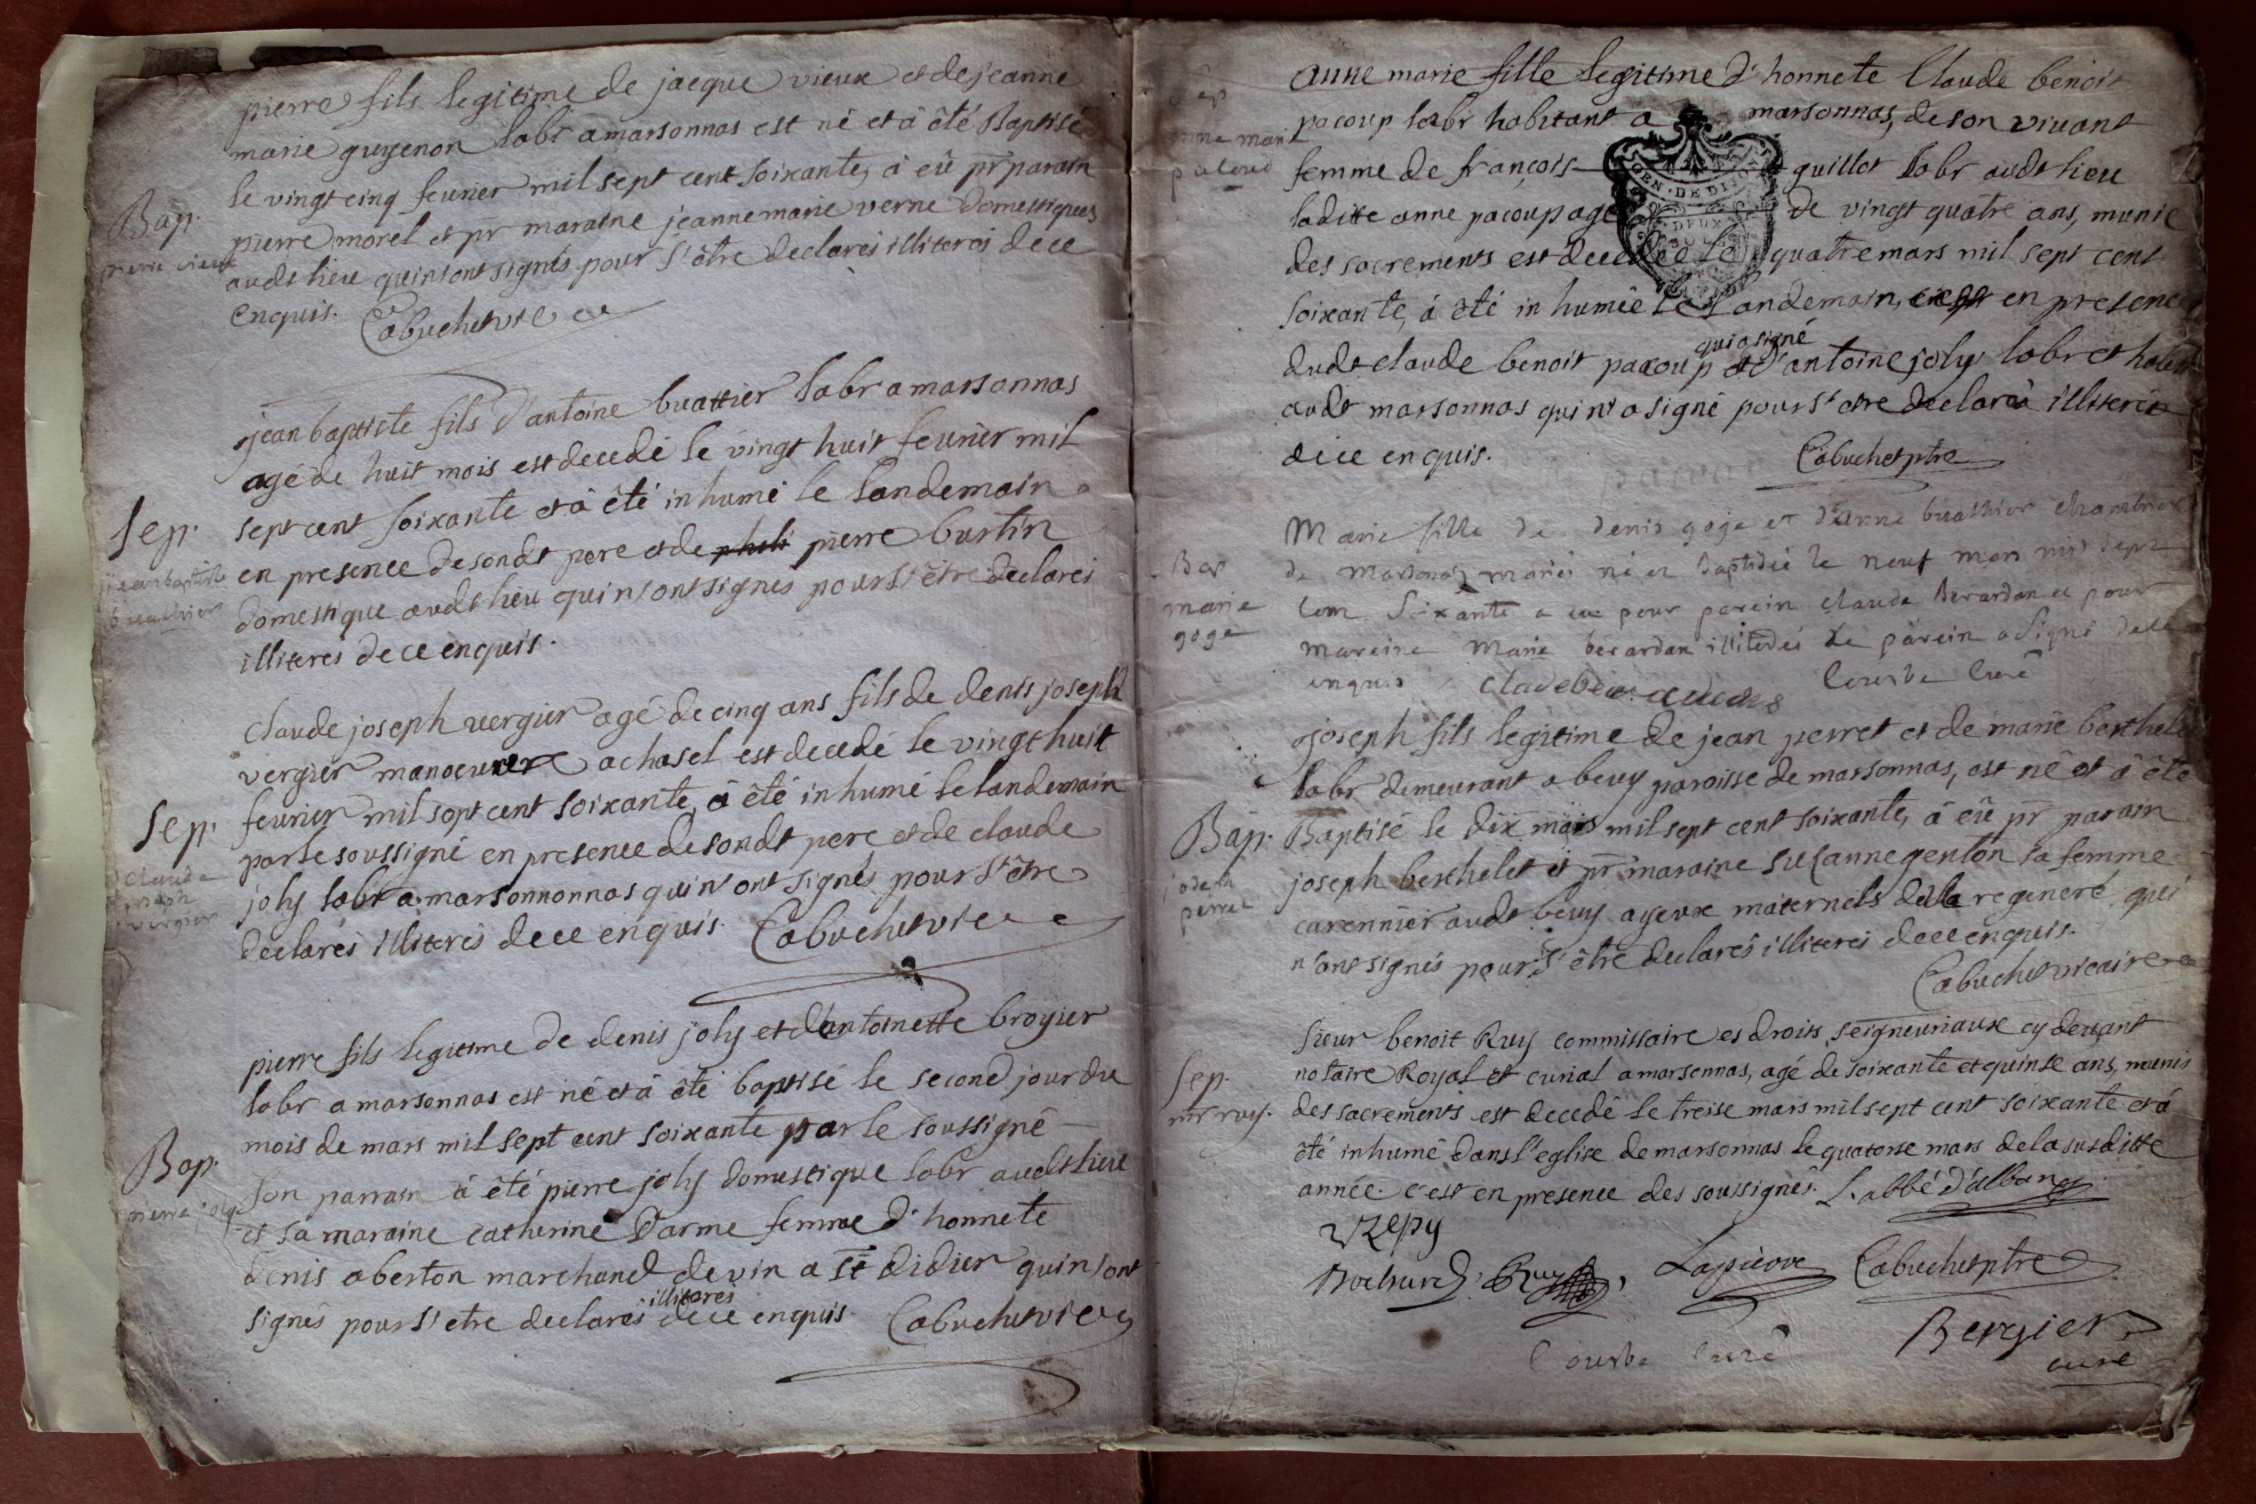 pierre fils legitime de jacque vieux et de jeanne
marie guyenon labr a marsonnas est né et à êté Baptisé
le vingt cinq feurier mil sept cent soixante, à eû pr parain
Bap.
pierre vieux
pierre morel et pr maraine jeanne marie verne domestiques
audt lieu quin'ont signés pour s'être declarés illiteréi de ce
enquis. Cabuchet vic
jean baptiste fils d'antoine buattier labr a marsonnas
agé de huit mois est decedé le vingt huit feurier mil
Sep.
jean baptiste
buathier
sept cent soixante et à êté inhumé le landemain
en presence de sondt pere et de pierre burtin
domestique audt lieu quin'ont signés pour s'être declarei
illiterés de ce enquis.
claude joseph vergier agé de cinq ans fils de denis joseph
vergier manoeuvre a chasel est decedé le vingt huit
Sep.
claude
joseph
vergier
feurier mil sept cent soixante, à êté inhumé le landemain
par le soussigné en presence de sondt pere et de claude
joly labr a marsonnonnas quin'ont signés pour s'être
declarés illiterés de ce enquis. Cabuchet vic
pierre fils legitime de denis joly et d'antoinette broyier
labr a marsonnas est né et à êté baptisé le second jour du
mois de mars mil sept cent soixante par le soussigné
Bap.
pierre joly
son parrain à êté pierre joly domestique labr audt lieu
et sa maraine catherine Darme femme d'honnete
denis aberton marchand de vin a st didier quin'ont
signés pour s'etre declarés illiterés de ce enquis. Cabuchet vic
anne marie fille legitime d'honnete Claude benoit
pacoup labr habitant a marsonnas, de son vivant
Sep
anne mari
femme de françois guillot labr audt lieu
GEN. DE DIJON
DEUX
ladite anne pacoup agé de vingt quatre ans, munie
des sacrements est decedée le quatre mars mil sept cent
soixante, à êté inhumée le landemain, en presence
dudt claude benoit pacoup qui a signé et d'antoine joly labr et habit
audt marsonnas quin'a signé pour s'etre declaré illiteré
de ce enquis. Cabuchet ptre
Marie fille de denis goge et d'anne buathier
Bap
marie
goge
de marsonas mariés né et baptisée le neuf mars mil sept
cent soixante a eu pour parein claude berardan et pour
mareine marie berardan illiterés le parein a signé de ce
enquis Courbe curé
joseph fils legitime de jean perret et de marie berthelet
labr demeurant a beuy paroisse de marsonnas, est né et à êté
Bap.
joseph
perret
Baptisé le dix mars mil sept cent soixante, à eû pr parain
joseph berthelet et pr maraine suzanne genton sa femme
carennier audt beuy ayeux maternels de la regeneré qui
n'ont signés pour s'être declarés illiterés de ce enquis.
Cabuchet vicaire
Sieur benoit Ruy commissaire es droits seigneuriaux cy devant
Sep.
mr ruy.
notaire Royal et curial a marsonnas, agé de soixante et quinse ans, munis
des sacrements est decedé le treise mars mil sept cent soixante et à
êté inhumé dans l'eglise de marsonnas le quatorse mars de la susditte
année. c'est en presence des soussignés. L'abbé d'alban
Rochard Ruy Lapierre Cabuchet ptre
Courbe curé
Bergier
curé